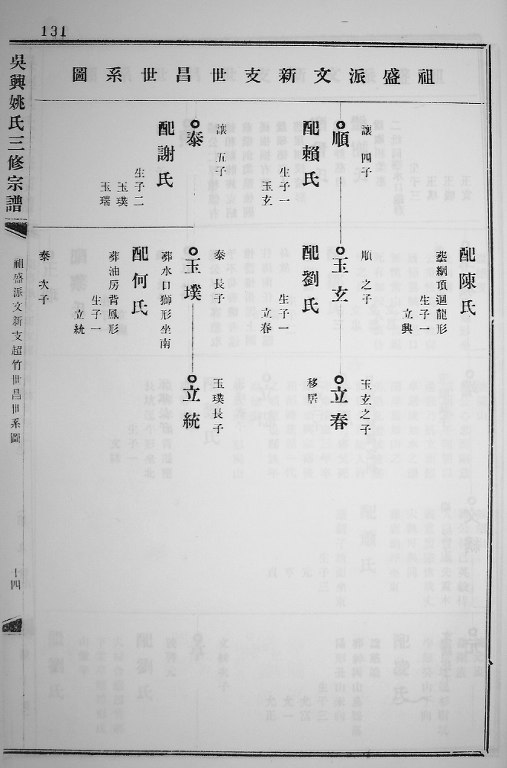 131
祖盛派文新支世昌世系圖
配陳氏
葬綱頂迴龍形
生子一
立興
讓四子
順
配賴氏
生子一
玉玄
讓五子
泰
配謝氏
生子二
玉璞
玉瑞
順之子
玉玄
配劉氏
生子一
立春
泰長子
玉璞
葬水口獅形坐南
配何氏
葬油房背鳳形
生子一
立統
泰次子
玉玄之子
立春
移居
玉璞長子
立統
吳興姚氏三修宗譜
祖盛派文新支超竹世昌世系圖
十四